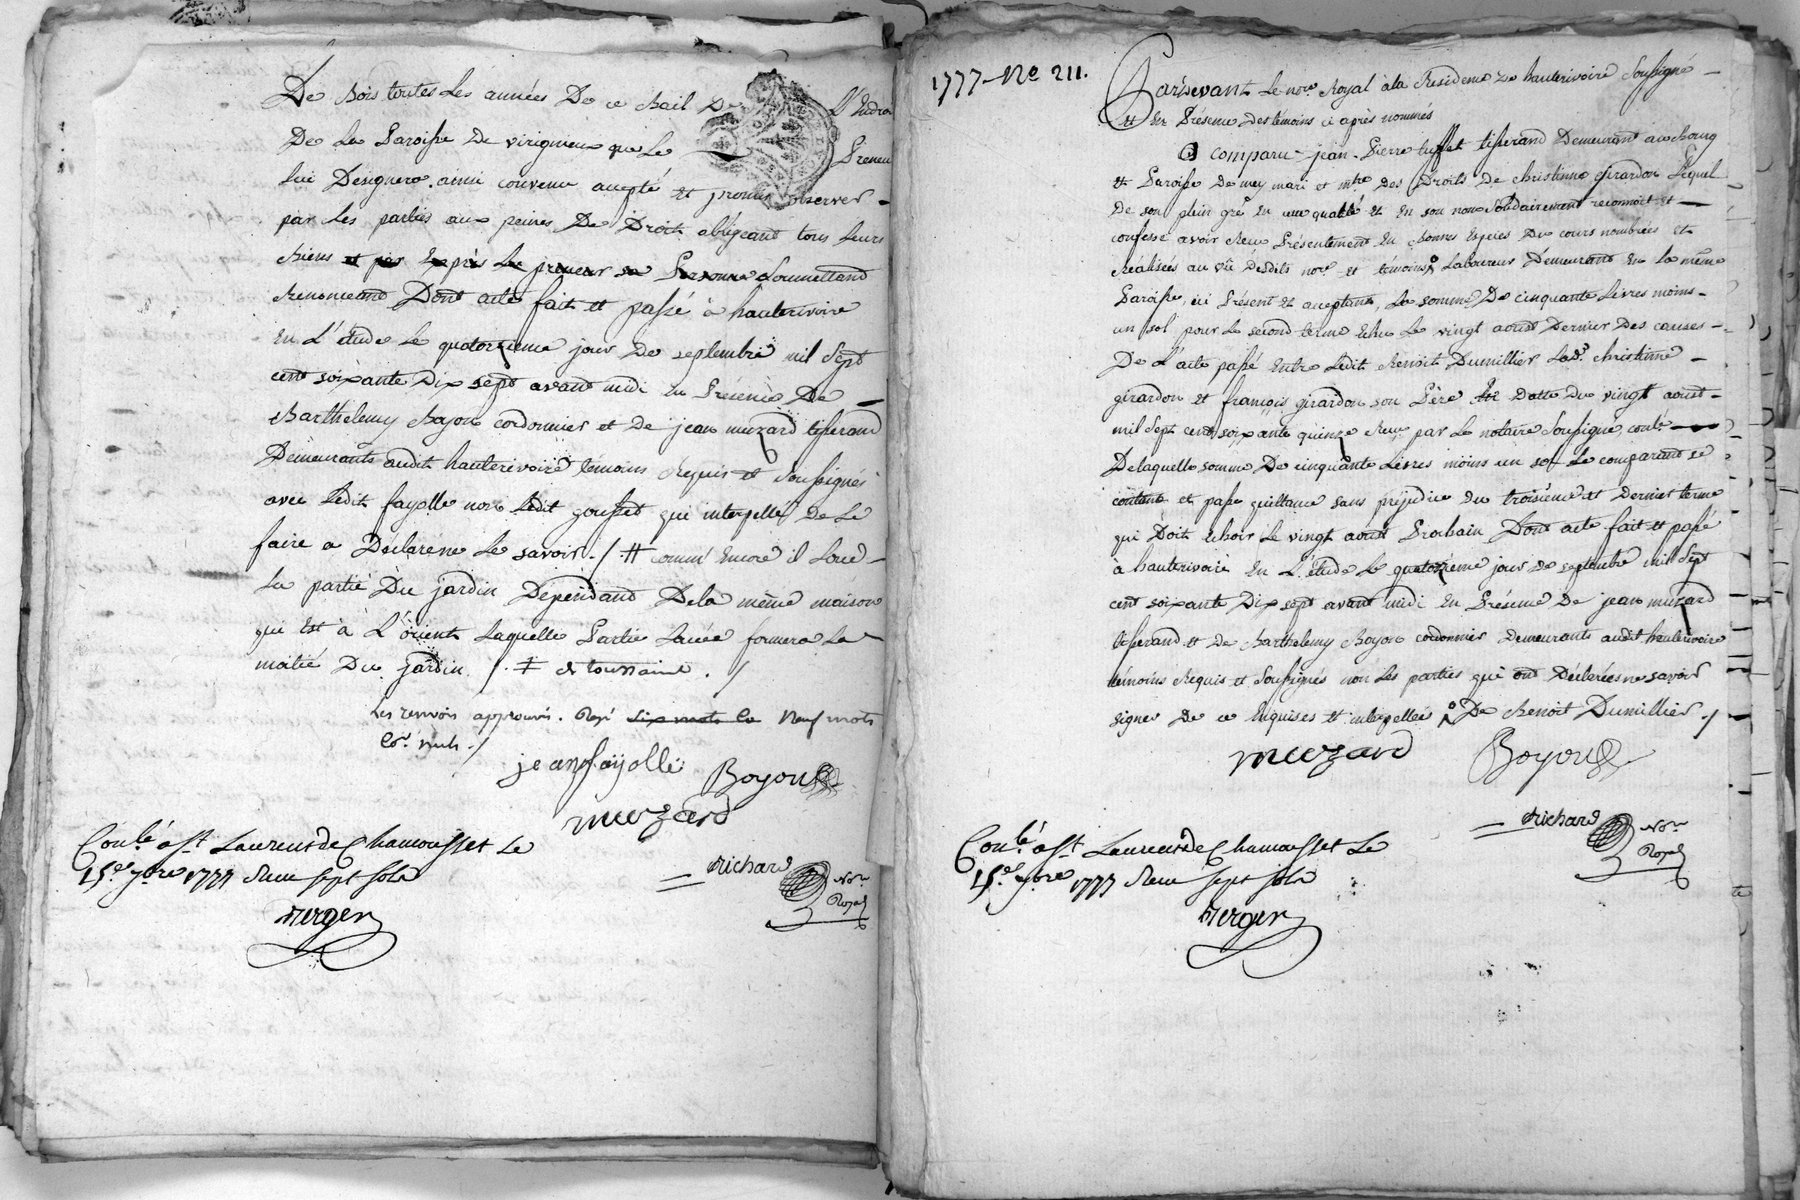 De Bois toutes Les années De ce Bail De L'Endroi
De La Paroisse De virigneux que Le Preneur
lui Designera. ainsi convenu accepté et promis observer -
par Les parties aux peines De Droit obligeant tous leurs
Biens et par Exprès Le preneur sa Personne Soumettand
Renonceand Dont acte fait et passé à hauterivoire
En L'étude Le quatorzieme jour De septembre mil Sept
cent soixante Dix sept avant midi En Présence De
Barthelemy Boyon cordonnier et De jean muzard tisserand
Demeurants audit hauterivoire témoins Requis et Soussignés
avec Ledit fayolle non Ledit gousset qui interpellé De Le
faire a Déclaré ne Le savoir . / # comme Encore il Loue
La partie Du jardin Dépendand De la même maison
qui Est à L'orient Laquelle Partie Louée formera La
moitié Du jardin / . ‡ de toussaint . /
Les renvois approuvés . Rayé six mots Co Neuf mots
Co.e nuls . /
jean fayolle Boyon
muzard
Con.lé à St Laurent de Chamousset Le
15.e 7bre 1777 Reçu sept sols
Richard Not.re Royal
Berger
1777 - No 211.
Pardevant Le no.re Royal à la Résidence De hauterivoire Soussigné
et En Présence Des témoins ci après nommés
a comparu jean Pierre tuffet tisserand Demeurant au Bourg
et Paroisse De mey mari et m.tre Des Droits De christinne girardon Lequel
De son plein gré En une qualité et En son nom Solidairement reconnoît et
confesse avoir Reçu Présentement En Bonnes Especes Du cours nombrées et
Réalisées au vû Desdits no.re et témoins ° Laboureur Demeurand En la même
Paroisse, ici Présent et acceptant, La somme De cinquante Livres moins
un sol pour Le second terme Echu Le vingt aoust Dernier Des causes
De L'acte passé Entre Ledit Benoit Dumillier Lad.e christinne
girardon et françois girardon son Père En Datte Du vingt aoust
mil Sept cent soixante quinze Reçu par Le notaire Soussigné, con.lé
De laquelle somme De cinquante Livres moins un sol Le comparant se
contente et passe quittance sans préjudice du troisième et Dernier terme
qui Doit Echoir Le vingt aoust Prochain Dont acte fait et passé
à hauterivoire En L'étude Le quatorzième jour De septembre mil Sept
cent soixante Dix sept avant midi En Présence De jean muzard
tisserand et De Barthelemy Boyon cordonnier Demeurants audit hauterivoire
témoins Requis et Soussignés non Les parties qui ont Déclarées ne savoir
signer De ce Enquises et interpellées ° De Benoit Dumillier . /
muzard Boyon
Richard Not.re Royal
Con.lé à St Laurent de Chamousset Le
15.e 7bre 1777 Reçu sept sols
Berger